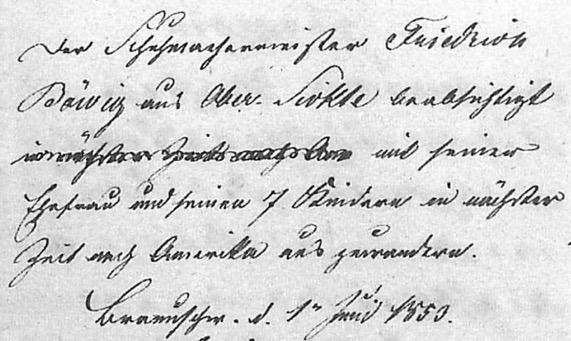 Der Schuhmachermeister Friedrich
Bäwig aus Ober-Sickte beabsichtigt
in nächster Zeit nach Am mit seiner
Ehefrau und seinen 7 Kindern in nächster
Zeit nach Amerika aus zuwandern.
Braunschw. d. 1n Juni 1853.